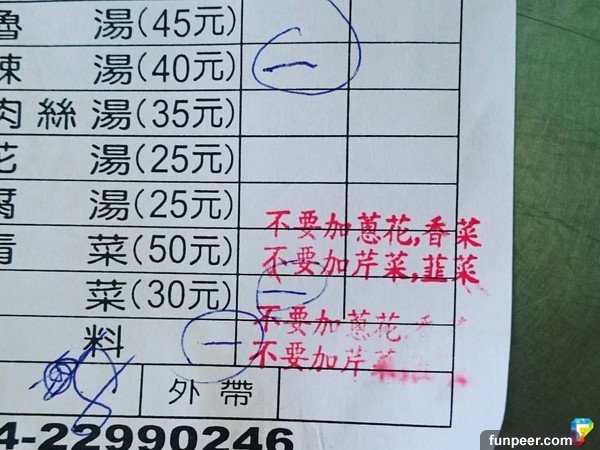 湯(45元)
湯(40元) 一
肉絲湯(35元)
花 湯(25元)
湯(25元)
不要加蔥花,香菜
青 菜(50元)
不要加芹菜,韮菜
菜(30元) 一
不要加蔥花
料 一
不要加芹菜
外帶
4-22990246
funpeer.com